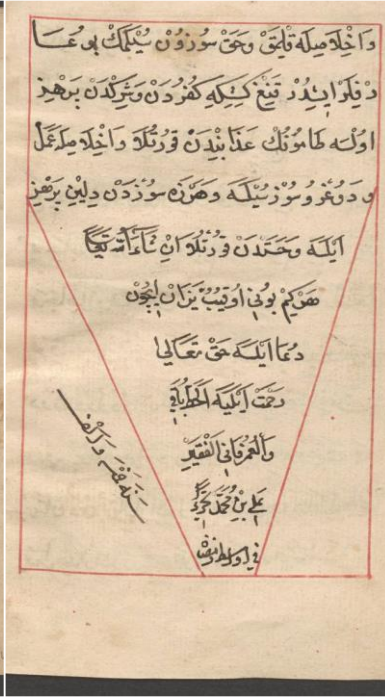 و اخلاصيله قلمق و حق سوزون سيلمك بو عسا
دقلو ايتدر قنغ كتكله كفردن و شركدن پرهيز
اولسه طامونك عذابندن قورتلا و اخلاصله عمل
و دوغرو سوز سيلسه و هرزه سوزدن دلين پرهيز
ايلسه و حمتدن قورتلا ان شاء الله تعالى
هر كيم بونى اوقيب يزان ايچون
دعا ايلسه حق تعالى
رحمت ايليه الخط باقى
والعمر فانى الفقير
على بن محمد
فى اواسط
سنه والف